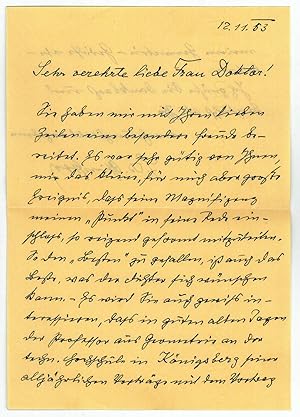 12.11.53
Sehr verehrte liebe Frau Doktor!
Sie haben mir mit Ihren lieben
Zeilen eine besondere Freude be-
reitet. Es war sehr gütig von Ihnen,
mir das kleine, für mich aber große
Ereignis, daß seine Magnifizenz
meinen „Punkt" in seine Rede ein-
schloß, so reizend mitzuteilen.
So den „Besten" zu gefallen, ist auch das
Beste, was der Dichter sich wünschen
kann. – Es wird Sie auch gewiß in-
teressieren, daß in guten alten Tagen
der Professor aus Geometrie an der
techn. Hochschule in Königsberg seine
alljährlichen Vorträge mit dem Vortrag